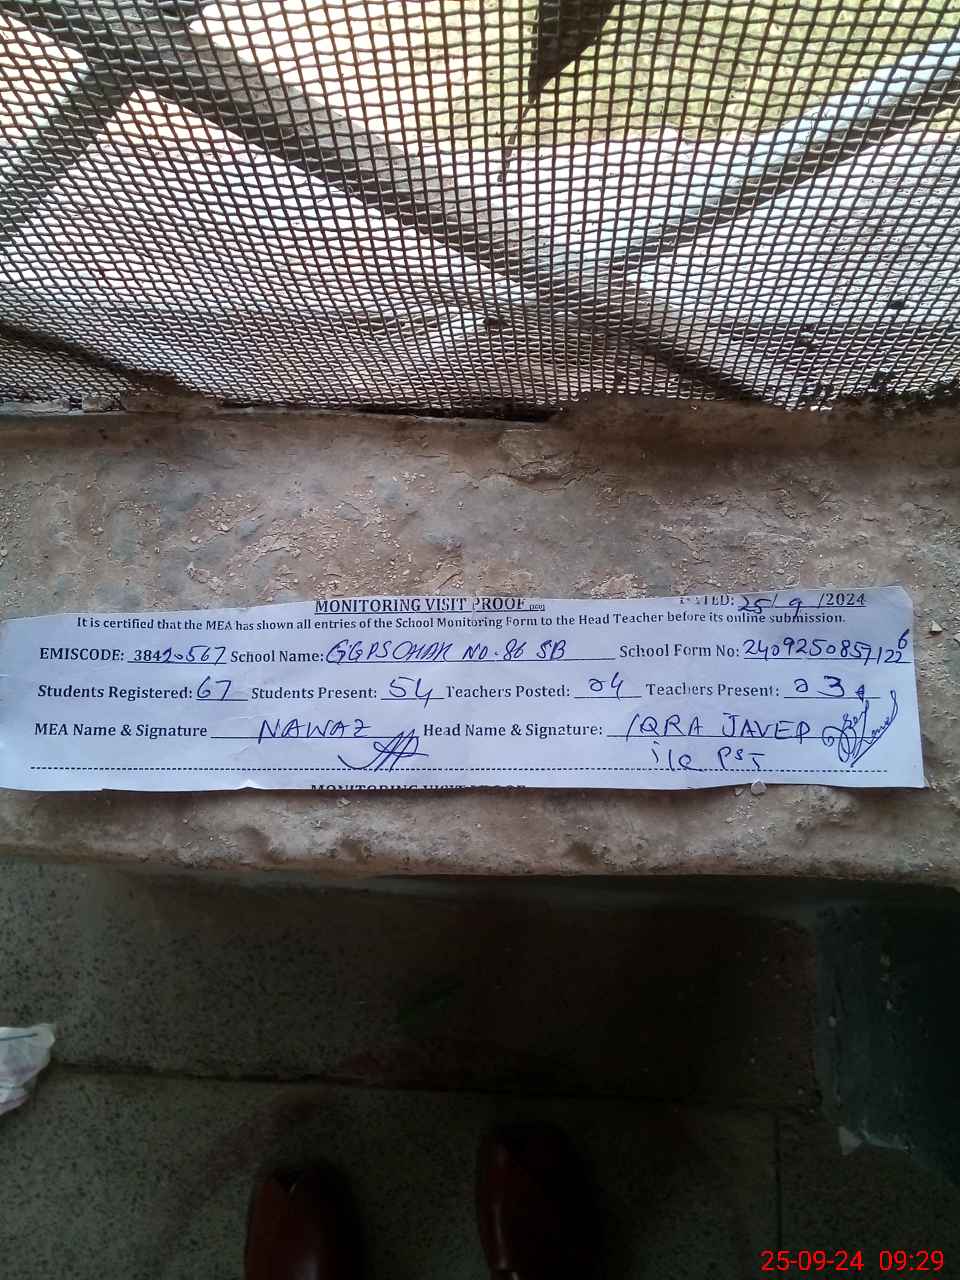 MONITORING VISIT PROOF DATED: 25/9/2024
It is certified that the MEA has shown all entries of the School Monitoring Form to the Head Teacher before its online submission.
EMISCODE: 38420567 School Name: GGPS CHAK NO. 86 SB School Form No: 2409250857122
6
Students Registered: 67 Students Present: 54 Teachers Posted: 04 Teachers Present: 03
MEA Name & Signature NAWAZ Head Name & Signature: IQRA JAVED
i/c PST
MONITORING VISIT PROOF
25-09-24 09:29